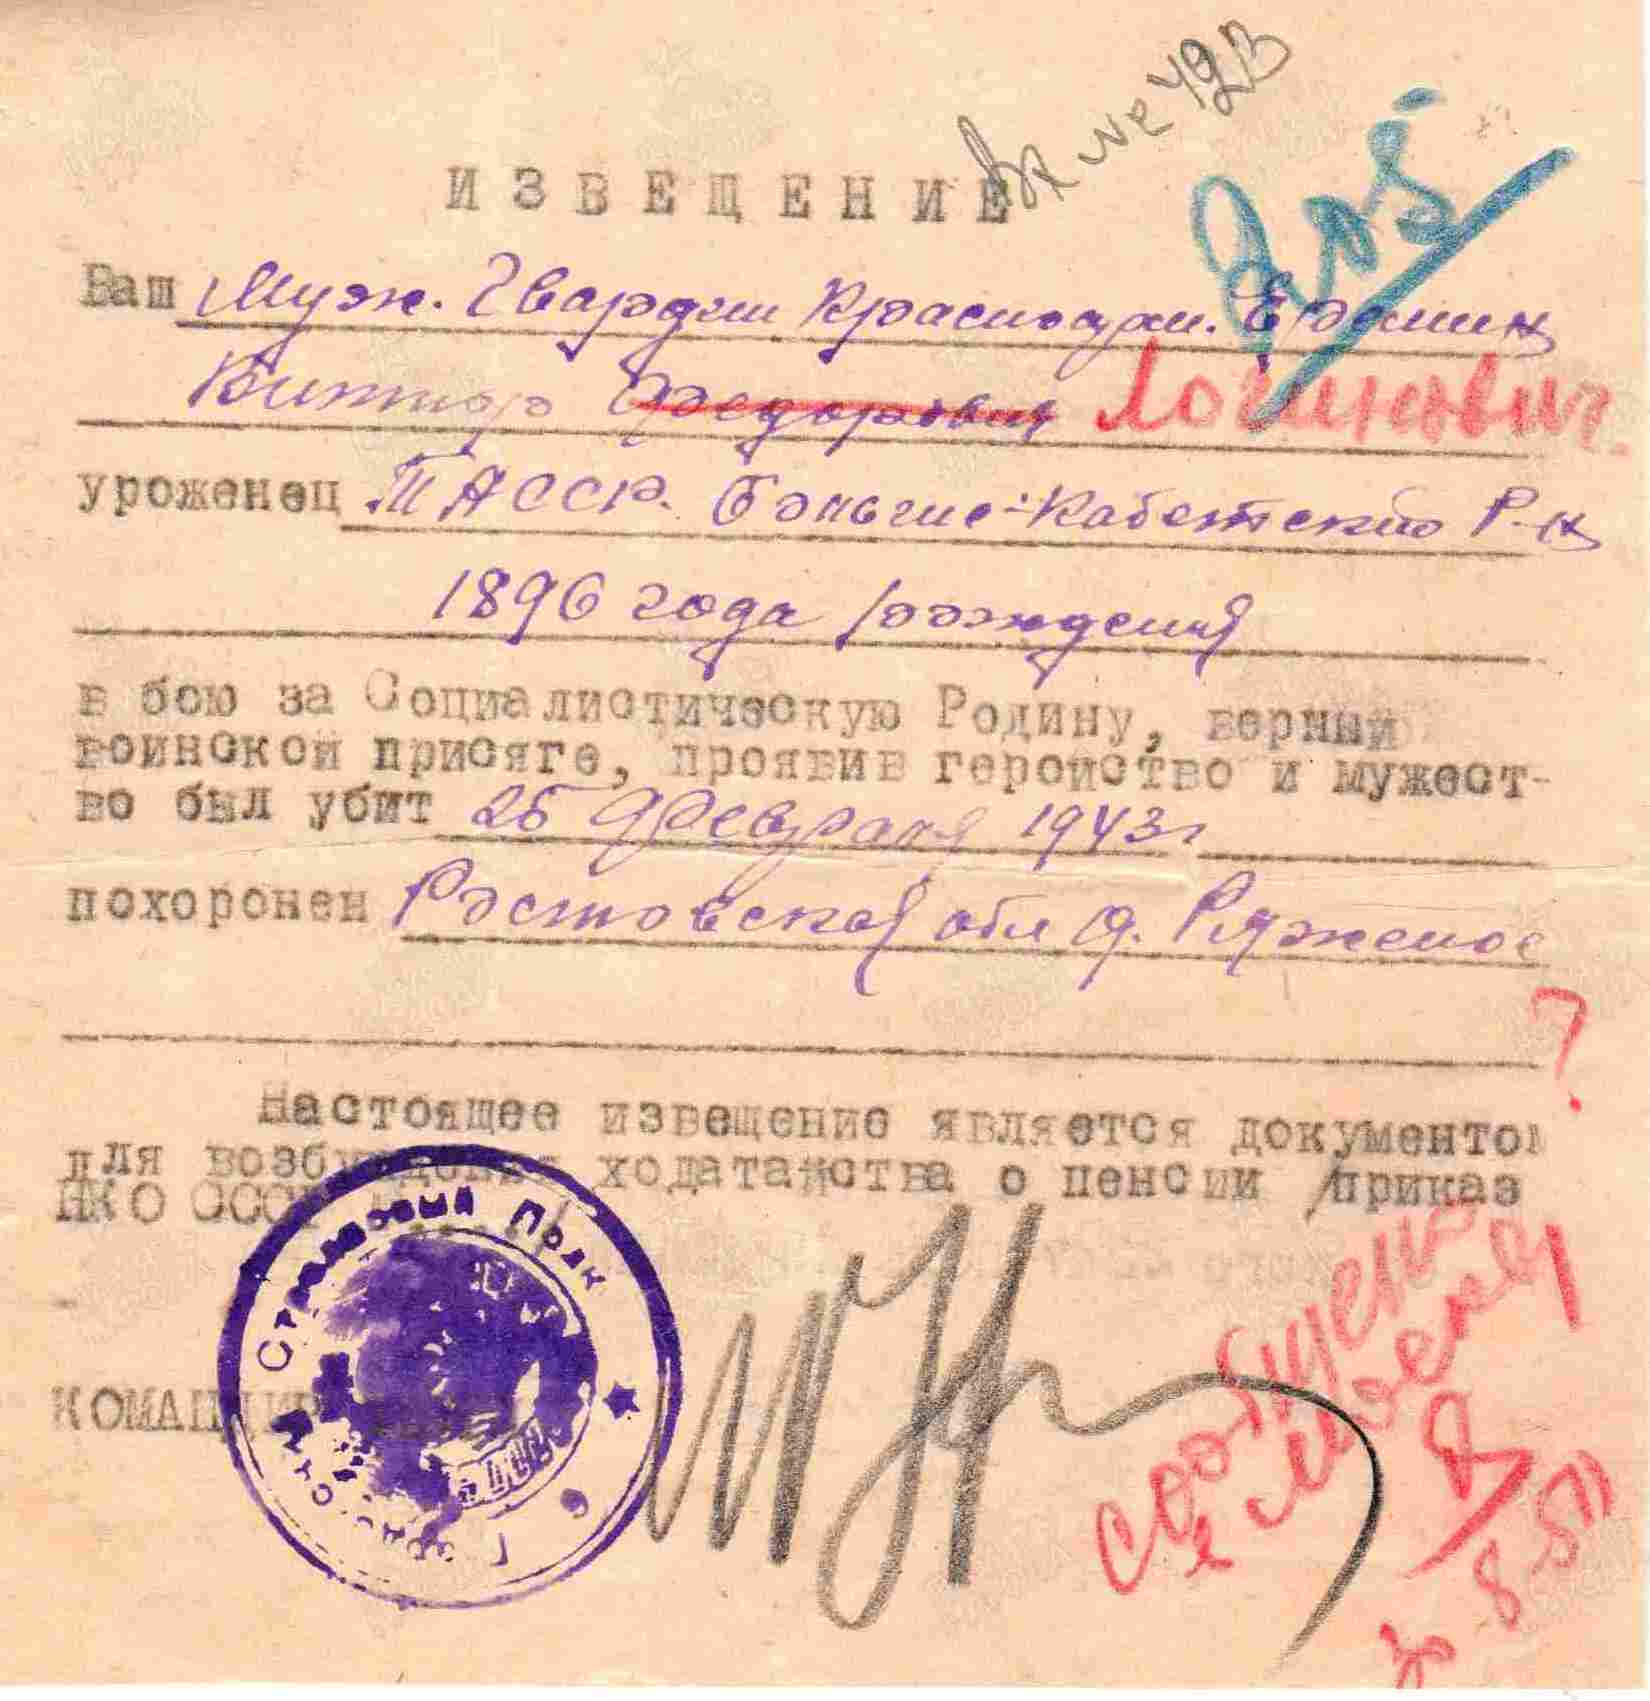 вх № 423
ИЗВЕЩЕНИЕ
Ваш Муж. Гвардии Красноарм. Ерёмин
Виктор Федорович Логинович.
уроженец ТАССР. Больше-Кабетский Р-н
1896 года рождения
в бою за Социалистическую Родину, верный
воинской присяге, проявив геройство и мужест-
во был убит 25 Февраля 1943г
похоронен Ростовская обл д. Ряженое
?
Настоящее извещение является документом
для возбуждения ходатайства о пенсии /приказ
НКО СССР
КОМАНДИР
Стрелковый Полк